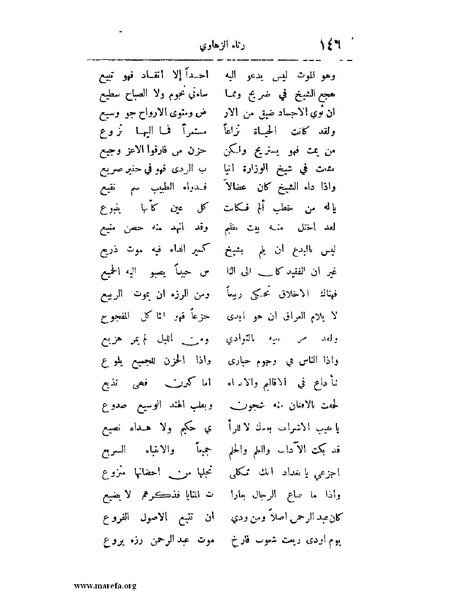 ١٤٦
رثاء الزهاوي
وهو الموت ليس يدعو اليه احداً إلا انقاد فهو تبيع
هجع الشيخ في ضريح ومما ساءني نجوم ولا الصباح سطيع
ان ثوي الاجساد ضيق من الار ض ومثوى الارواح جو وسيع
ولقد كانت الحياة نزاعاً مستمراً فما اليها نزوع
من يمت فهو يستريح ولكن حزن من فارقوا الاعز وجيع
في شيخ الوزارة انيا ب الردى فهو في حفير صريع
واذا داء الشيخ كان عضالاً فدواء الطبيب سم نقيع
ياله من خطب ألم فكانت كل عين كأنها ينبوع
لقد اختل منه بيت عظيم وقد انهد منه حصن منيع
ليس بالبدع ان يلم بشيخ كبير الداء فيه موت ذريع
غير ان الفقيد كان الى النا س حبيباً يصبو اليه الجميع
فهناك الاخلاق تحكي ربيعاً ومن الرزء ان يموت الربيع
لا يلام العراق ان هو ابدى جزعاً فهو الثاكل المفجوع
بالنوادي ومن الليل لم يمر هزيع
واذا الناس في وجوم حيارى واذا الحزن للجميع يلوع
في الاقاليم فهي تذيع
بالافغان منه شجون وبقلب الهند الوسيع صدوع
يا نقيب الاشراف بعدك لا للرأ ي حكيم ولا هداه نصيع
قد بكت الآداب والعلم والحلم جميعاً والانقياء السريع
اجزعي يا بغداد انك ثكلى نجلها من احضانها منزوع
واذا ما ضاع الرجال بغارا ت المنايا فذكرهم لا يضيع
كان عبد الرحمن اصلاً ومن ودي ان تتبع الاصول الفروع
يوم اودى ريعت شعوب فارخ موت عبد الرحمن رزء يروع
www.marefa.org